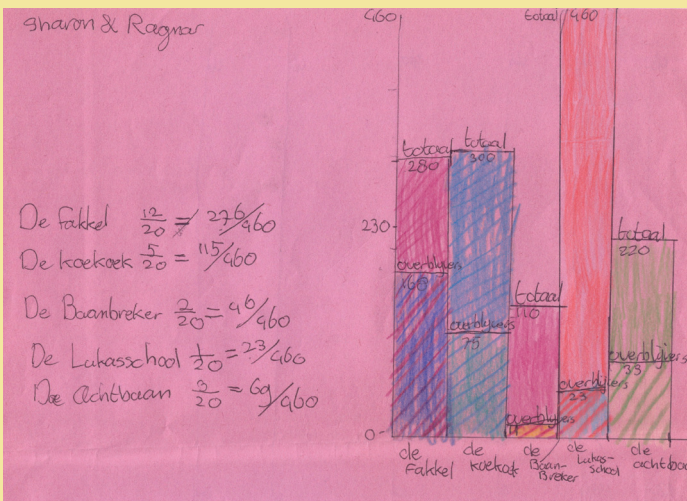 Sharon & Ragnar
De Fakkel 12/20 = 276/460
De Koekoek 5/20 = 115/460
De Baanbreker 2/20 = 46/460
De Lukasschool 1/20 = 23/460
De Achtbaan 3/20 = 69/460
460
230
0
totaal
280
overblijvers
160
totaal
300
overblijvers
75
totaal
110
overblijvers
11
totaal 460
overblijvers
23
totaal
220
overblijvers
33
de Fakkel
de Koekoek
de Baan-
Breker
de Lukas-
school
de achtbaa